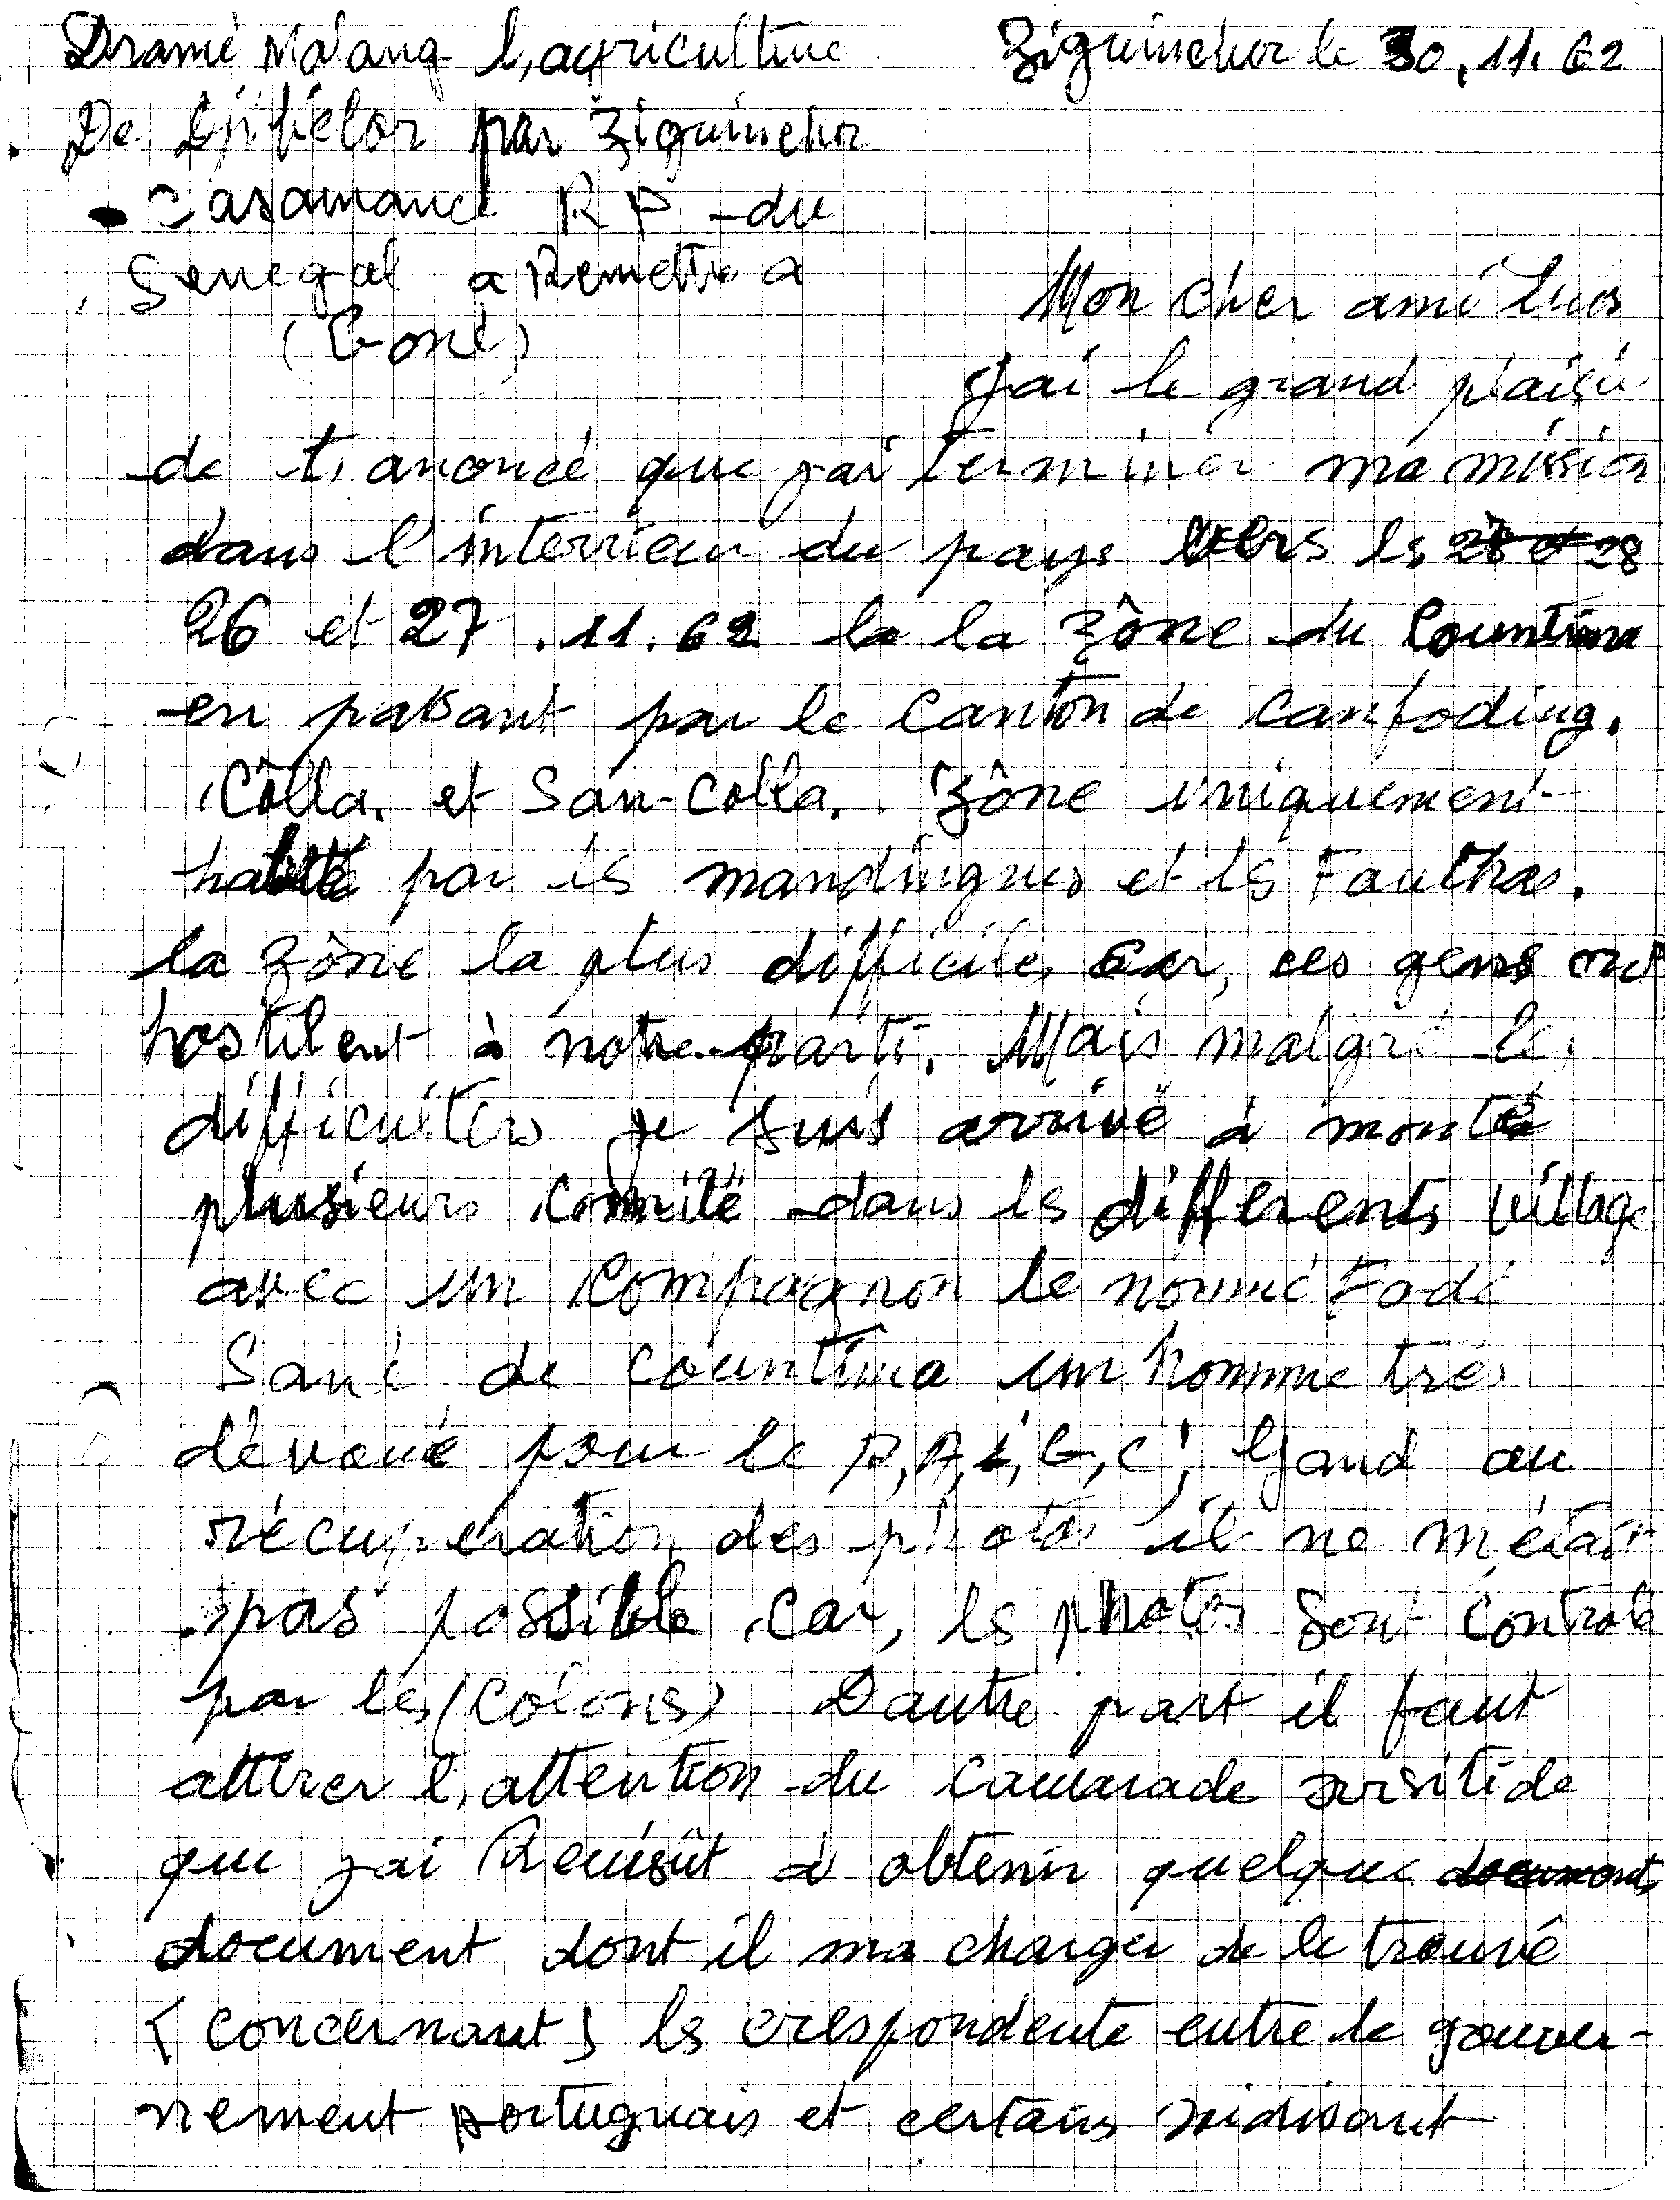 Dramé Malang l,agriculture
Ziguinchor le 30.11.62
De Djibelor par Ziguinchor
Casamance RP - du
Senegal a Remettre a
(Goné)
Mon cher ami Luis
j'ai le grand plaisir
de t, anoncé que j'ai terminer ma mission
dans l'interrieur du pays vers les 28 et 28
26 et 27.11.62 la la zône du Countima
en passant par le Canton de Canfoding.
Côlla. et San-Colla. Zône uniquement
habité par les mandingues et les Foulhas.
la zône la plus difficile, car, ces gens ont
hostilent à notre parti. Mais malgré les
difficulters je suis arrivé à monté
plusieurs comité dans les differents village
avec un compagnon le nommé Fodé
Sané de Countima un homme très
dévoué pour le P,A,i,G,C! Gand au
récuperation des photos il ne m'était
pas possible car, les photos sont controlé
par les (Colons) Dautre part il faut
attirer l,attention du camarade Arsitide
que j'ai Reuisût à obtenir quelque documents
document dont il ma charger de le trouvé
{concernant} les crespondente entre le gouver-
nement portuguais et certains soidisant